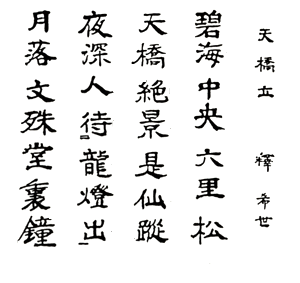 天橋立　釋希世
碧海中央六里松
天橋絶景是仙蹤
夜深人待龍燈出
月落文殊堂裏鐘